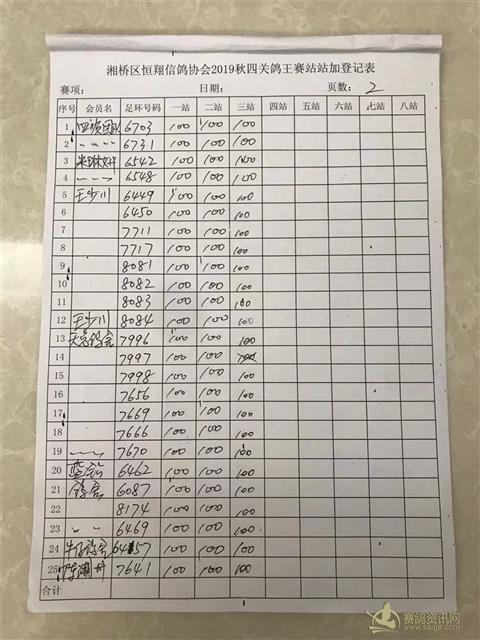 湘桥区恒翔信鸽协会2019秋四关鸽王赛站站加登记表
赛项： 日期： 页数： 2
序号 会员名 足环号码 一站 二站 三站 四站 五站 六站 七站 八站
1 团队 6703 100 100 100
2 〃 〃 〃 6731 100 100 100
3 6542 100 100 100
4 〃 〃 〃 6548 100 100 100
5 王少川 6449 100 100 100
6 6450 100 100 100
7 7711 100 100 100
8 7717 100 100 100
9 8081 100 100 100
10 8082 100 100 100
11 8083 100 100 100
12 王少川 8084 100 100 100
13 鸽舍 7996 100 100 100
14 7997 100 100
15 7998 100 100 100
16 7656 100 100 100
17 7669 100 100 100
18 7666 100 100 100
19 〃 〃 7670 100 100 100
20 6462 100 100 100
21 鸽舍 6087 100 100 100
22 8174 100 100 100
23 〃 〃 6469 100 100 100
24 鸽舍 6457 100 100 100
25 陈潮州 7641 100 100 100
合计
赛鸽资讯网
www.saige.com